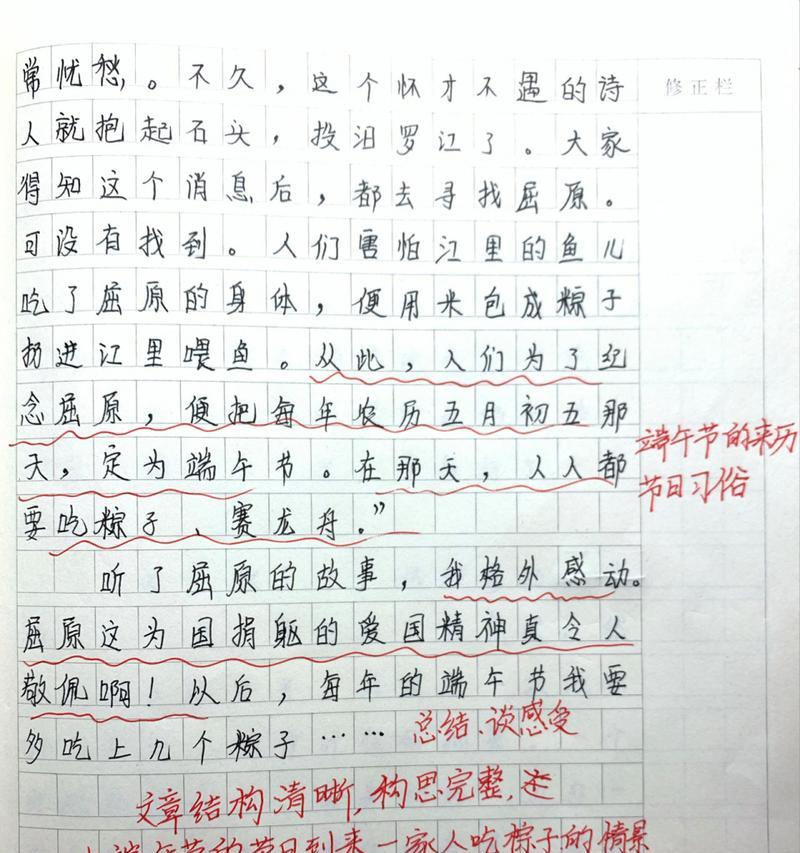 常忧愁。不久，这个怀才不遇的诗
修正栏
人就抱起石头，投汨罗江了。大家
得知这个消息后，都去寻找屈原。
可没有找到。人们害怕江里的鱼儿
吃了屈原的身体，便用米包成粽子
扔进江里喂鱼。从此，人们为了纪
念屈原，便把每年农历五月初五那
天，定为端午节。在那天，人人都
要吃粽子、赛龙舟。”
端午节的来历
节日习俗
听了屈原的故事，我格外感动。
屈原这为国捐躯的爱国精神真令人
敬佩啊！以后，每年的端午节我要
多吃上几个粽子……
总结、谈感受
文章结构清晰，构思完整，
端午节的节日到来一家人吃粽子的情景